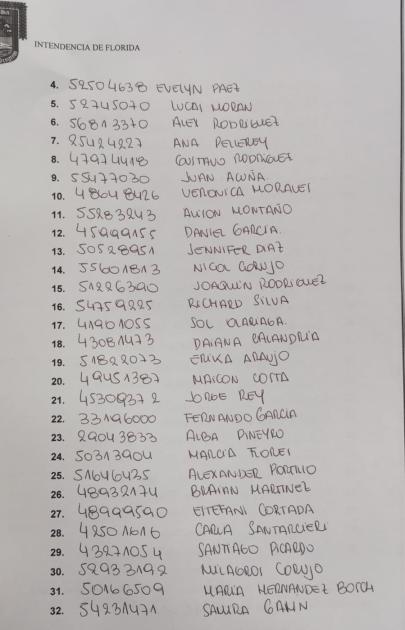 INTENDENCIA DE FLORIDA
4. 52504638 EVELYN PAEZ
5. 52745070 LUCAS MORAN
6. 56813370 ALEX RODRIGUEZ
7. 25424227 ANA PELEREY
8. 47974418 GUSTAVO RODRIGUEZ
9. 55477030 JUAN ACUÑA.
10. 48648426 VERONICA MORALES
11. 55283243 MONTAÑO
12. 45999155 DANIEL GARCIA.
13. 50528951 JENNIFER DIAZ
14. 55601813 NICOL CORUJO
15. 51226390 JOAQUIN RODRIGUEZ
16. 54759225 RICHARD SILVA
17. 41901055 SOL OLARIAGA.
18. 43081473 DAIANA CALANDRIA
19. 51822073 ERIKA ARAUJO
20. 49451387 MAICON COSTA
21. 45309372 JORGE REY
22. 33196000 FERNANDO GARCIA
23. 29043833 ALBA PINEYRO
24. 50313904 MARCIA FLORES
25. 51646435 ALEXANDER PORTILLO
26. 48932174 BRAIAN MARTINEZ
27. 48999590 ESTEFANI CORTADA
28. 42501616 CARLA SANTARCIERI
29. 43271054 SANTIAGO PICARDO
30. 52933192 MILAGROS CORUJO
31. 50166509 MARIA HERNANDEZ BOSCH
32. 54231471 SAMIRA GAHN